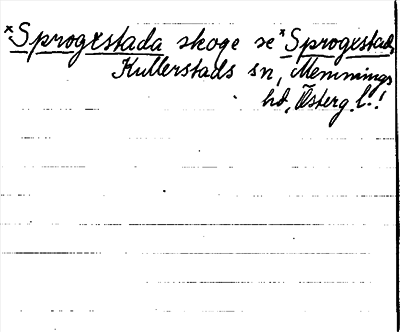 ×Sprogestada skoge se ×Sprogestad,
Kullerstads sn, Memmings
hd, Österg. l.!